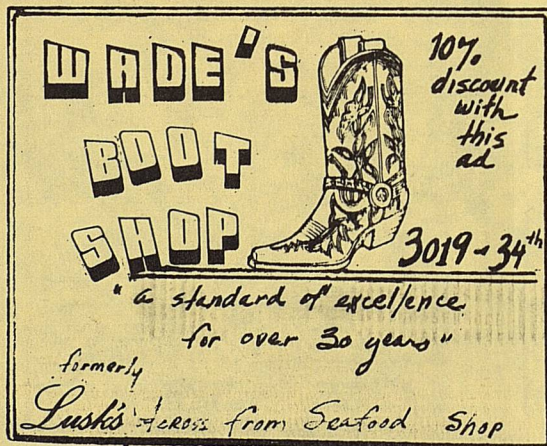 WADE'S
BOOT
SHOP
10%
discount
with
this
ad
3019 - 34th
"a standard of excellence
for over 30 years"
formerly
Lusk's Across from Seafood Shop